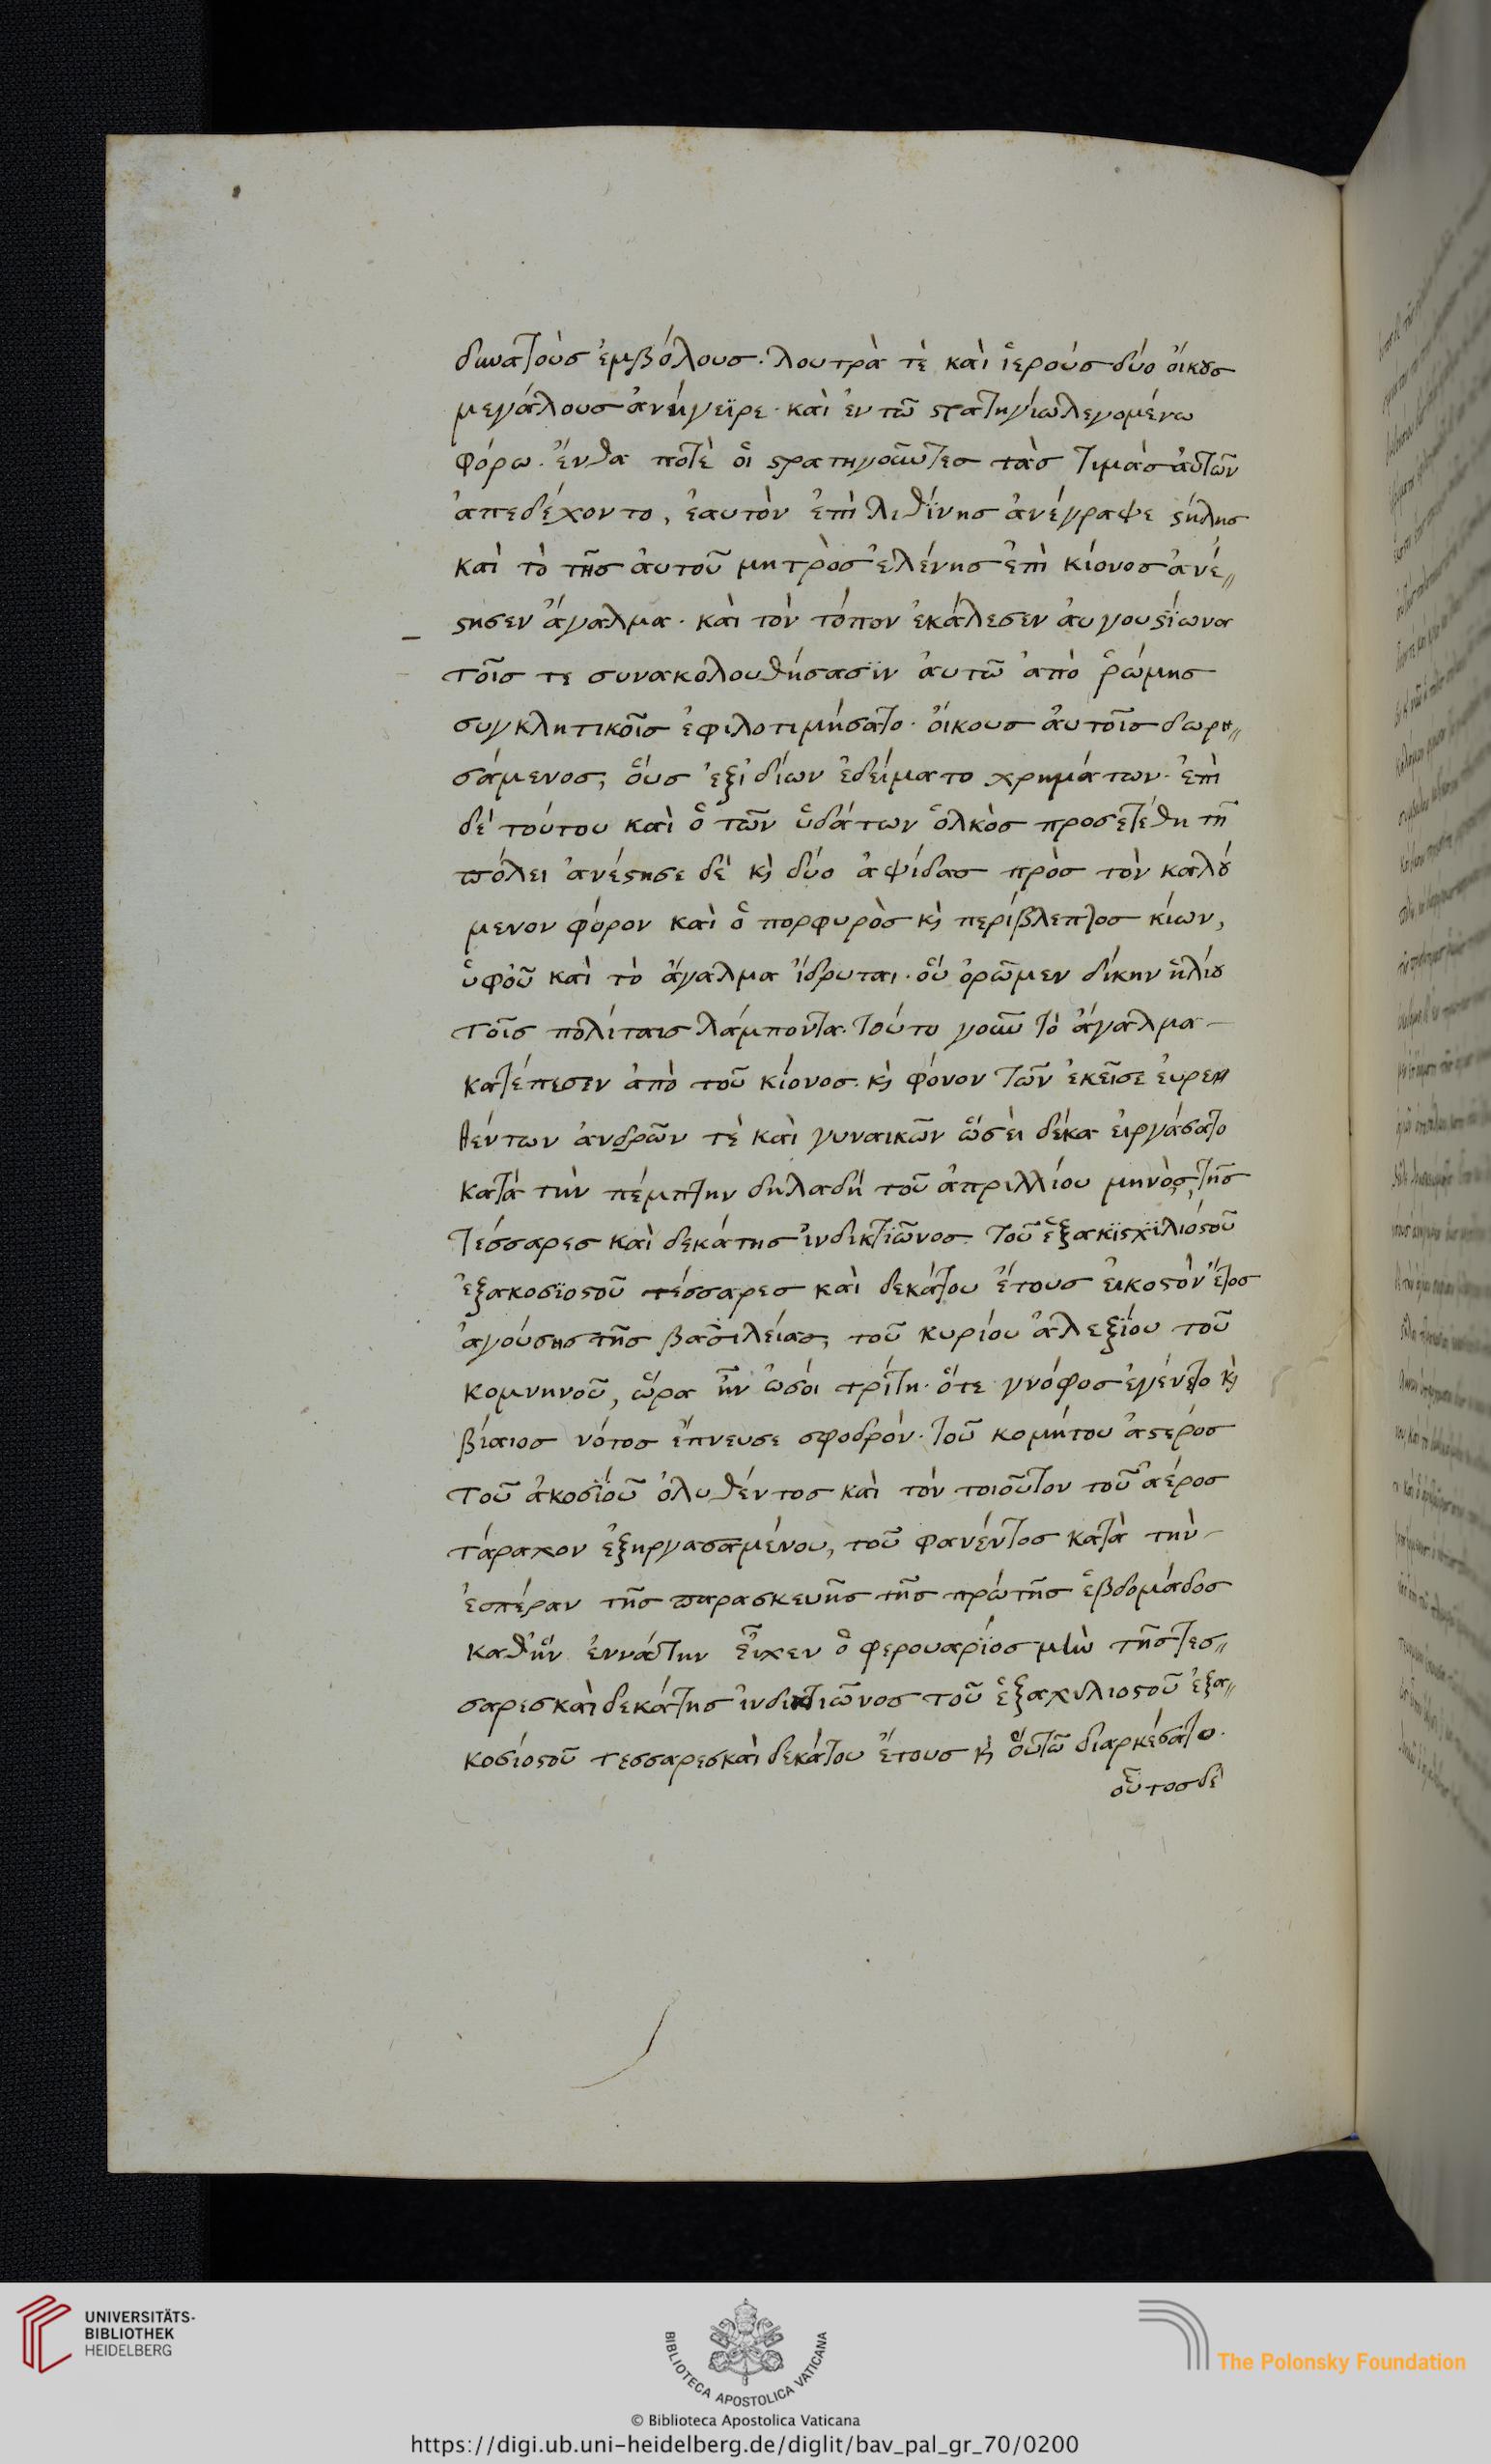 δυνατοὺσ ἐμβόλουσ· λουτρὰ τὲ καὶ ἱεροὺσ δύο ὄικουσ
μεγάλουσ ἀνήγειρε· καὶ ἐν τῶ στρατηγίω λεγομένω
φόρω· ἔνθα ποτὲ ὁι στρατηγοῦντεσ τὰσ τιμὰσ ἀυτῶν
ἀπεδέχοντο, ἑαυτὸν ἐπὶ λιθΐνησ ἀνέγραψε στήλησ
καὶ τὸ τῆσ ἀυτοῦ μητρὸσ ἑλένησ ἐπὶ κίονοσ ἀνέ〃
στησεν ἄγαλμα· καὶ τὸν τόπον ἐκάλεσεν ἀυγουστΐωνα
τοῖσ τε συνακολουθήσασϊν ἀυτῶ ἀπὸ ῥώμησ
συγκλητικοῖσ ἐφιλοτιμήσατο· ὄικουσ ἀυτοῖσ δωρη〃
σάμενοσ, ὅυσ ἐξιδίων ἐδείματο χρημάτων· ἐπὶ
δὲ τούτου καὶ ὁ τῶν ὑδάτων ὁλκὸσ προσετέθη τῆ
πόλει ἀνέστησε δὲ κὶ δύο ἀψίδασ πρὸσ τὸν καλού
μενον φόρον καὶ ὁ πορφυρὸσ κὶ περίβλεπτοσ κίων,
ὑφοῦ καὶ τὸ ἄγαλμα ἵδρυται· ὅυ ὁρῶμεν δίκην ἡλίου
τοῖσ πολίταισ λάμποντα· τούτο γοῦν τὸ ἄγαλμα
κατέπεσεν ἀπὸ τοῦ κίονοσ· κὶ φόνον τῶν ἐκεῖσε ἑυρεη
θέντων ἀνδρῶν τὲ καὶ γυναικῶν ὡσὲι δέκα ἐιργάσατο
κατὰ τὴν πέμπτην δηλαδὴ τοῦ ἀπριλλίου μηνὸσ, τῆσ
τέσσαρεσ καὶ δεκάτησ ἰνδικτϊῶνοσ τοῦ ἑξακϊσχϊλιόστοῦ
ἑξακοσϊοστοῦ τέσσαρεσ καὶ δεκάτου ἔτουσ ἐικοστὸν ἔτοσ
ἀγούσησ τῆσ βασιλείασ, τοῦ κυρίου ἀλεξΐου τοῦ
κομνηνοῦ, ὥρα ἦν ὡσὸι τρίτη· ὅτε γνόφοσ ἐγένετο κὶ
βίαιοσ νότοσ ἔπνευσε σφοδρὸν· τοῦ κομήτου ἀστέροσ
τοῦ ἀκοσϊοῦ ὀλυθέντοσ καὶ τὸν τοιοῦτον τοῦ ἀέροσ
τάραχον ἐξηργασαμένου, τοῦ φανέντοσ κατὰ τὴν
ἑσπέραν τῆσ παρασκευῆσ τῆσ πρώτησ ἑβδομάδοσ
καθὴν ἐννάτην εἶχεν ὁ φερουαρϊοσ μὴν τῆσ τεσ〃
σαρεσκαὶδεκάτησ ἰνδικτιῶνοσ τοῦ ἑξαχιλιοστοῦ ἑξα〃
κοσίοστοῦ τεσσαρεσκαὶδεκάτου ἔτουσ κὶ ὅυτω διαρκέσατο·
οὗτοσ δὲ
UNIVERSITÄTS-
BIBLIOTHEK
HEIDELBERG
BIBLIOTECA APOSTOLICA VATICANA
The Polonsky Foundation
© Biblioteca Apostolica Vaticana
https://digi.ub.uni-heidelberg.de/diglit/bav_pal_gr_70/0200